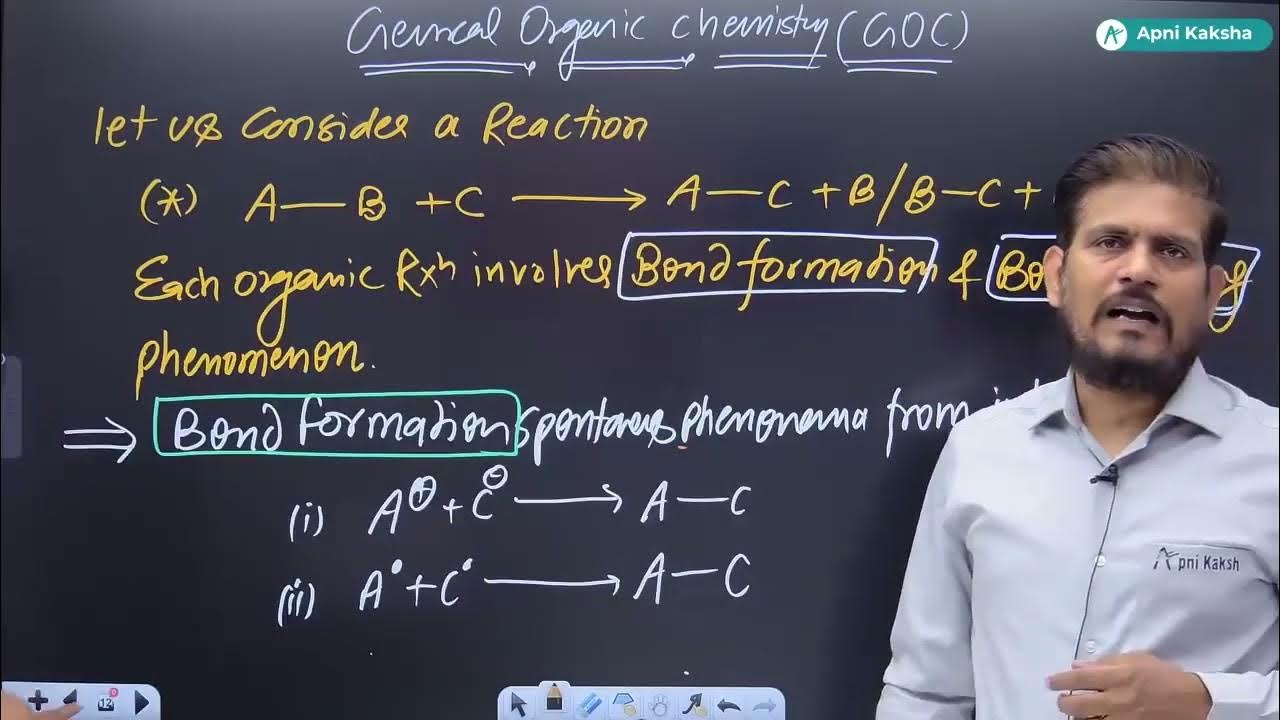 Genral Organic Chemistry (GOC)
Apni Kaksha
let us Consider a Reaction
(*) A—B + C ⟶ A—C + B / B—C +
Each organic Rxn involves Bond formation &
phenomenon.
⇒ Bond formation spontaneous phenomena from
(i) A⊕ + C⊖ ⟶ A—C
(ii) A• + C• ⟶ A—C
Apni Kaksh
12